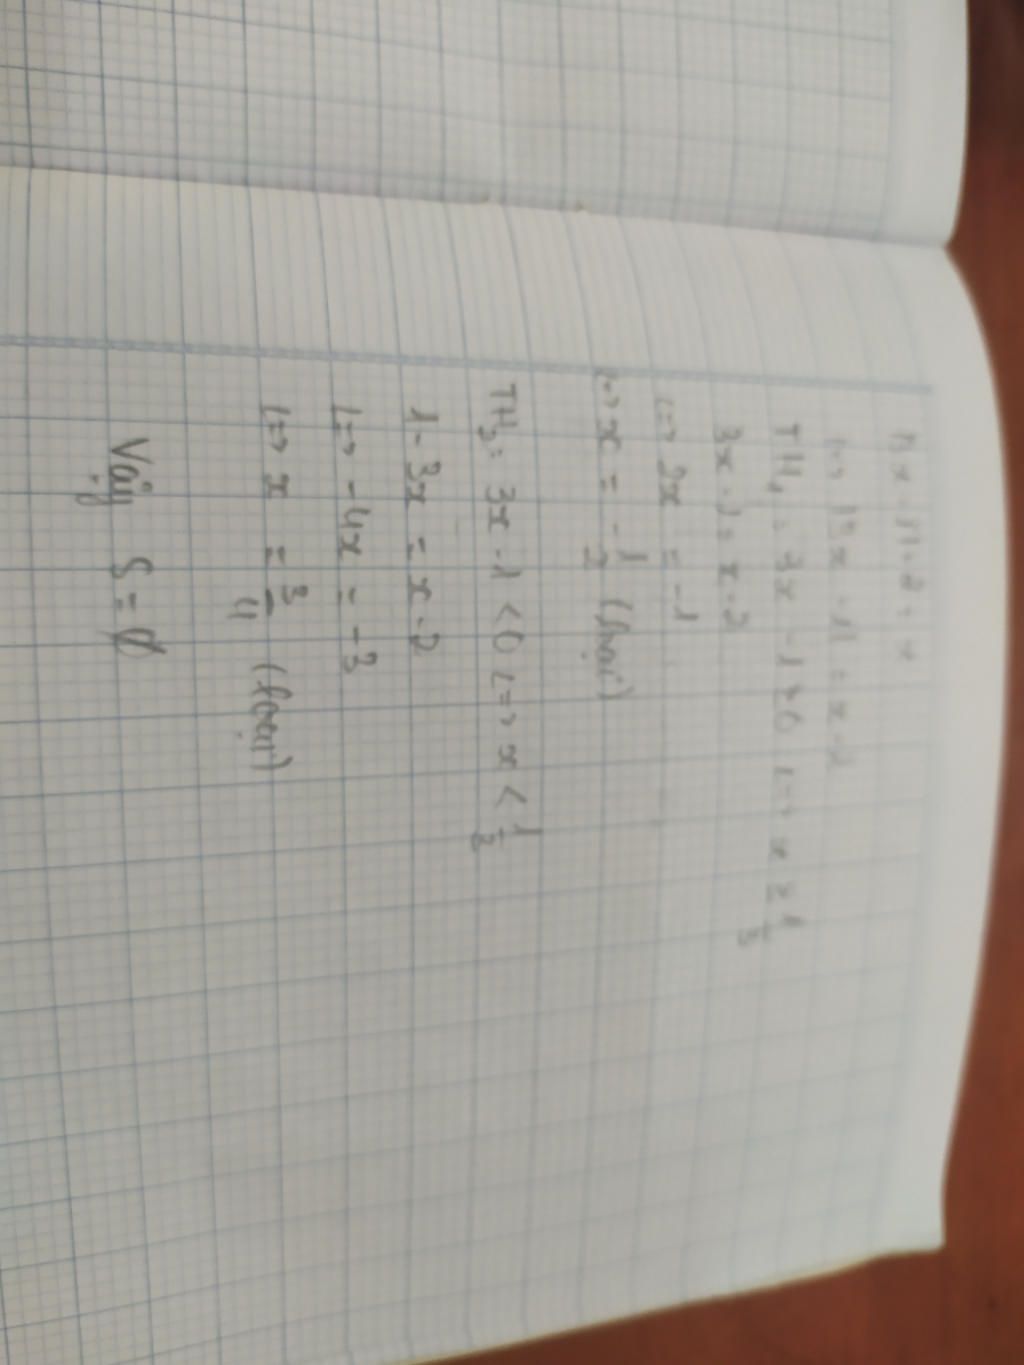 |3x - 1| + 2 = x
<=> |3x - 1| = x - 2
TH1: 3x - 1 ≥ 0 <=> x ≥ 1/3
3x - 1 = x - 2
<=> 2x = -1
<=> x = -1/2 (loại)
TH2: 3x - 1 < 0 <=> x < 1/3
1 - 3x = x - 2
<=> -4x = -3
<=> x = 3/4 (loại)
Vậy S = ∅